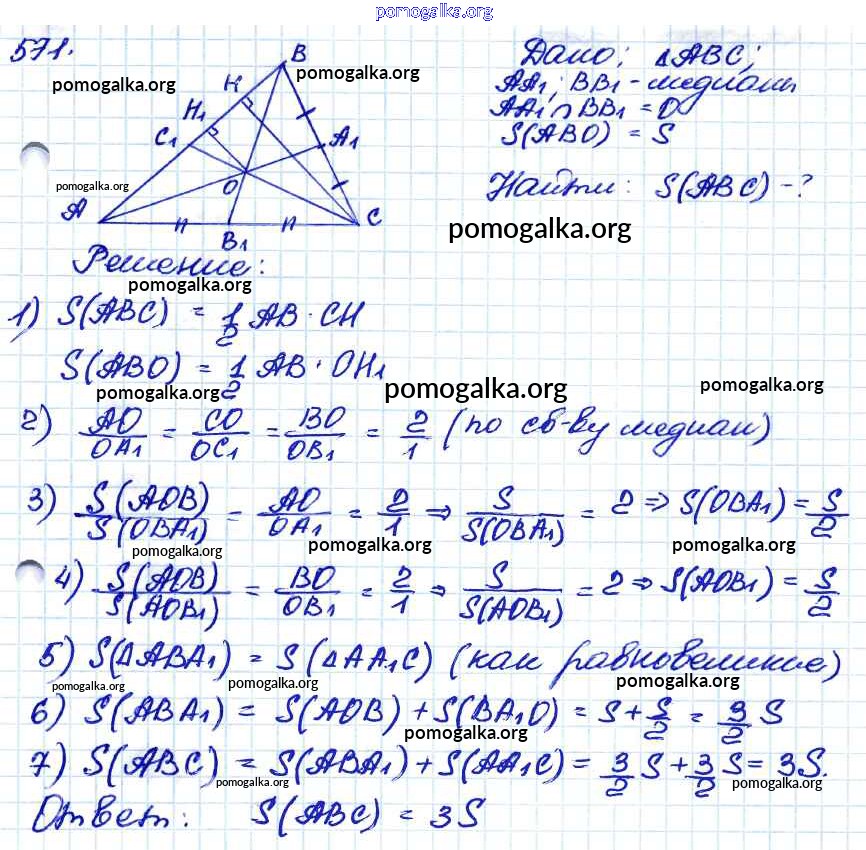 pomogalka.org
571.
B
Дано: ΔABC;
pomogalka.org
pomogalka.org
H
AA₁; BB₁ - медианы
H₁
AA₁ ∩ BB₁ = O
C₁
A₁
S(ABO) = S
O
pomogalka.org
Найти: S(ABC) - ?
A
C
B₁
pomogalka.org
Решение:
pomogalka.org
1) S(ABC) = 1/2 AB · CH
S(ABO) = 1/2 AB · OH₁
pomogalka.org
pomogalka.org
pomogalka.org
2) AO/OA₁ = CO/OC₁ = BO/OB₁ = 2/1 (по св-ву медиан)
3) S(AOB)/S(OBA₁) = AO/OA₁ = 2/1 ⇒ S/S(OBA₁) = 2 ⇒ S(OBA₁) = S/2
pomogalka.org
pomogalka.org
pomogalka.org
4) S(AOB)/S(AOB₁) = BO/OB₁ = 2/1 ⇒ S/S(AOB₁) = 2 ⇒ S(AOB₁) = S/2
5) S(ΔABA₁) = S(ΔAA₁C) (как равновеликие)
pomogalka.org
pomogalka.org
pomogalka.org
6) S(ABA₁) = S(AOB) + S(BA₁O) = S + S/2 = 3/2 S
pomogalka.org
7) S(ABC) = S(ABA₁) + S(AA₁C) = 3/2 S + 3/2 S = 3S.
pomogalka.org
pomogalka.org
Ответ: S(ABC) = 3S